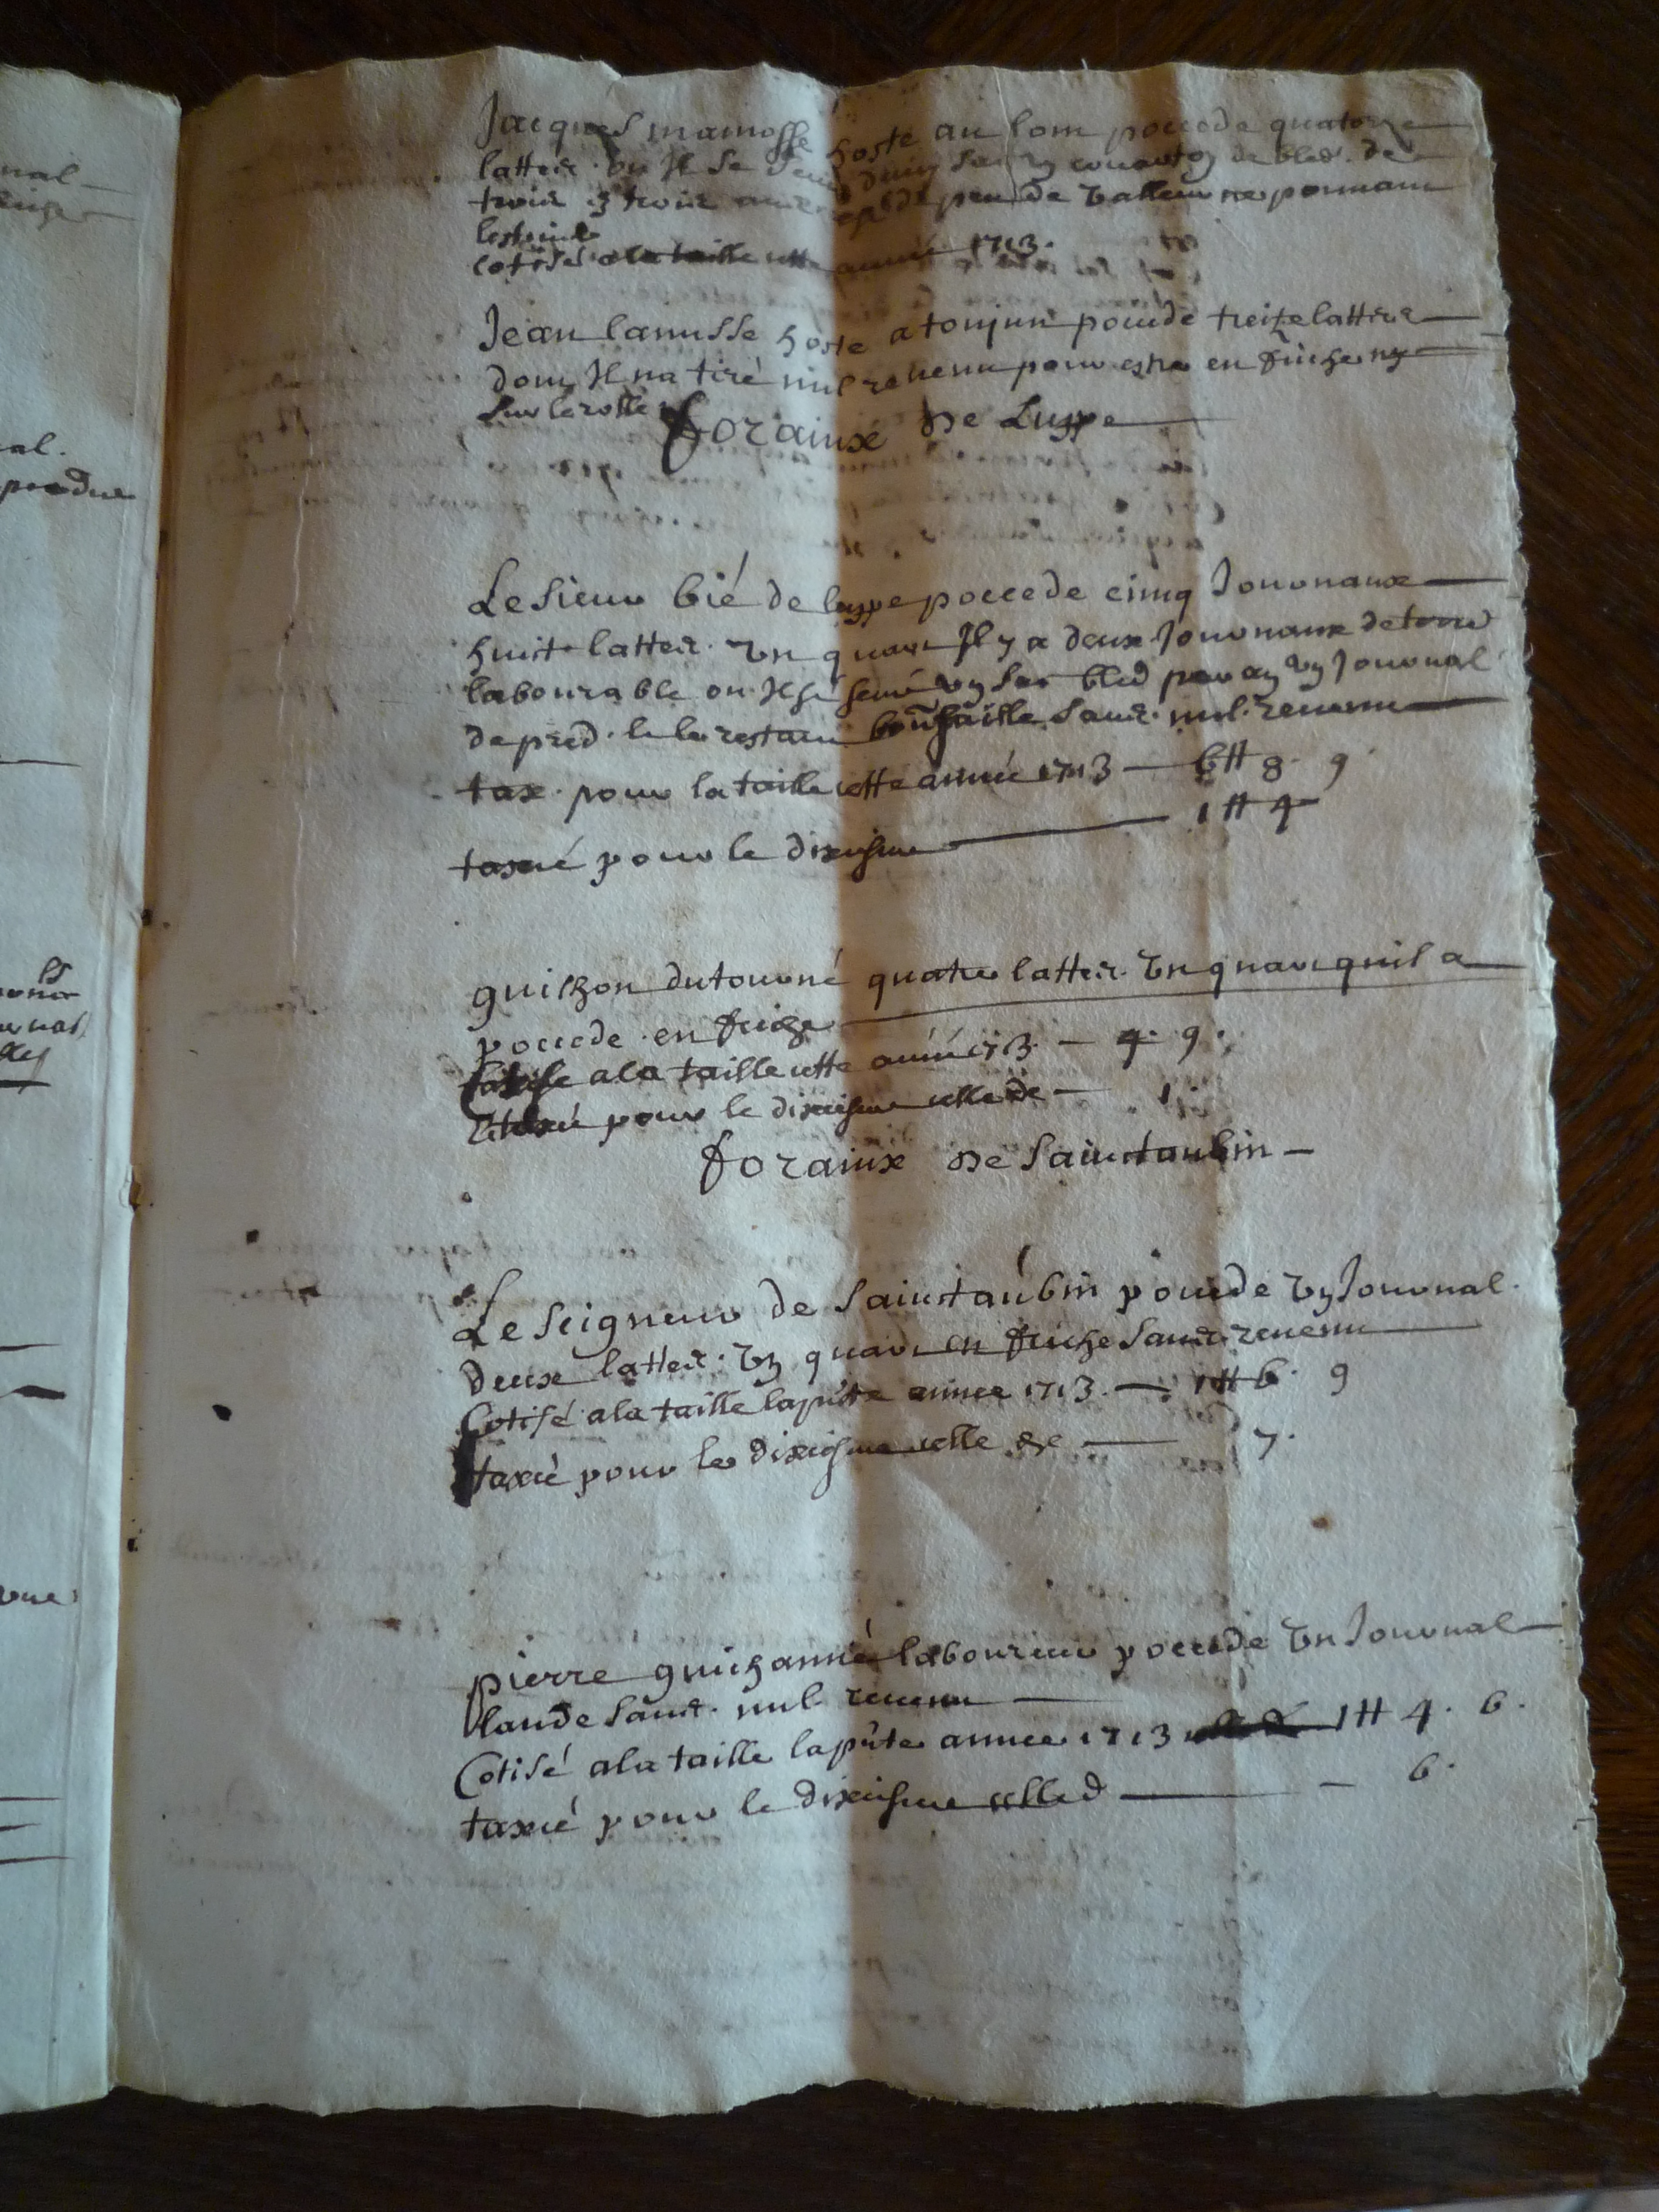 nal
al.
Jacques mamosse hoste au lom poccede quatorze
lattes. ou Il se de bled. de
trois en trois peu de valleur ne pouvant
cotisé a la taille cette année 1713.
Jean lanusse hoste a toujun poccede treitze lattes
dont Il na tiré nul revenu pour estre en friche ny
sur le rolle
forainx de Luppe
Le sieur bié de luppe poccede cinq Journaux
huit lattes. un quart Il y a deux Journaux de terre
labourable ou Il se semé un sac bled par an un Journal
de pred. le restant sans. nul. revenu
tax. pour la taille cette année 1713 — 6tt 8. 9
taxé pour le dixiesme — 1tt 4
guichon dutourné quatre lattes. un quart quil a
poccede en friche
Cotisé a la taille cette année 1713. — 4. 9.
taxé pour le dixiesme celle de — 1.
forainx de Sainctaubin —
Le seigneur de Sainctaubin poccede un Journal.
deux lattes. un quart en friche sans. revenu
Cotisé a la taille la pnte année 1713. — 1tt 6. 9
taxé pour le dixiesme celle de — 7.
pierre guichanné laboureur poccede un Journal
lande sans. nul revenu
Cotisé a la taille la pnte annee 1713 1tt 4. 6.
taxé pour le dixiesme celle d — 6.